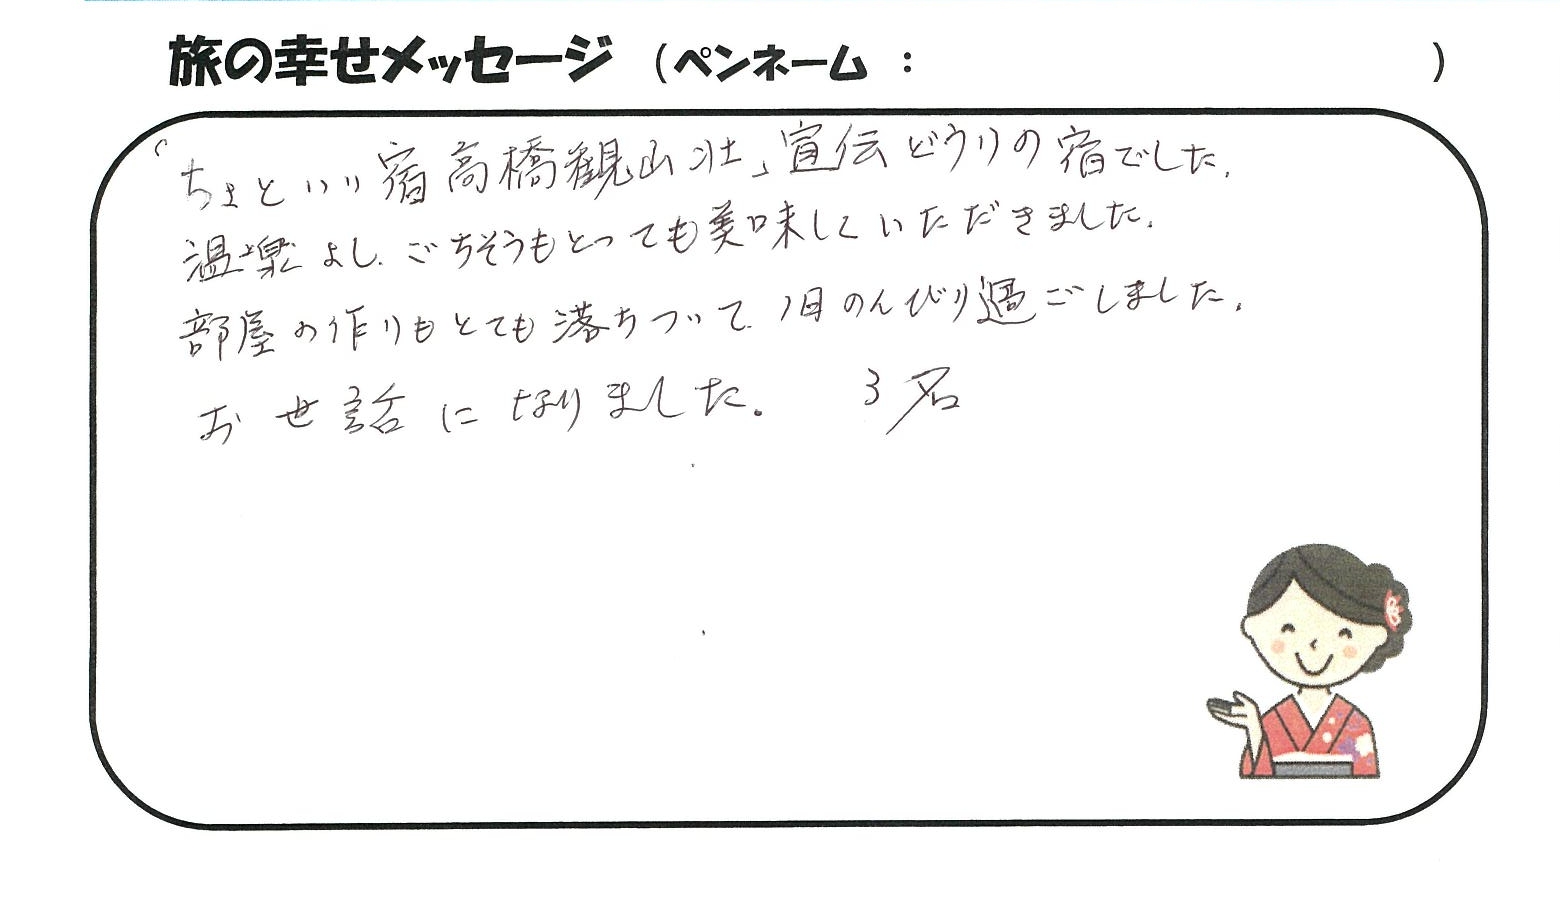 旅の幸せメッセージ （ペンネーム ： ）
「ちょといい宿高橋観山荘」宣伝どうりの宿でした。
温泉よし、ごちそうもとっても美味しくいただきました。
部屋の作りもとても落ちついて、1日のんびり過ごしました。
お世話になりました。 3名